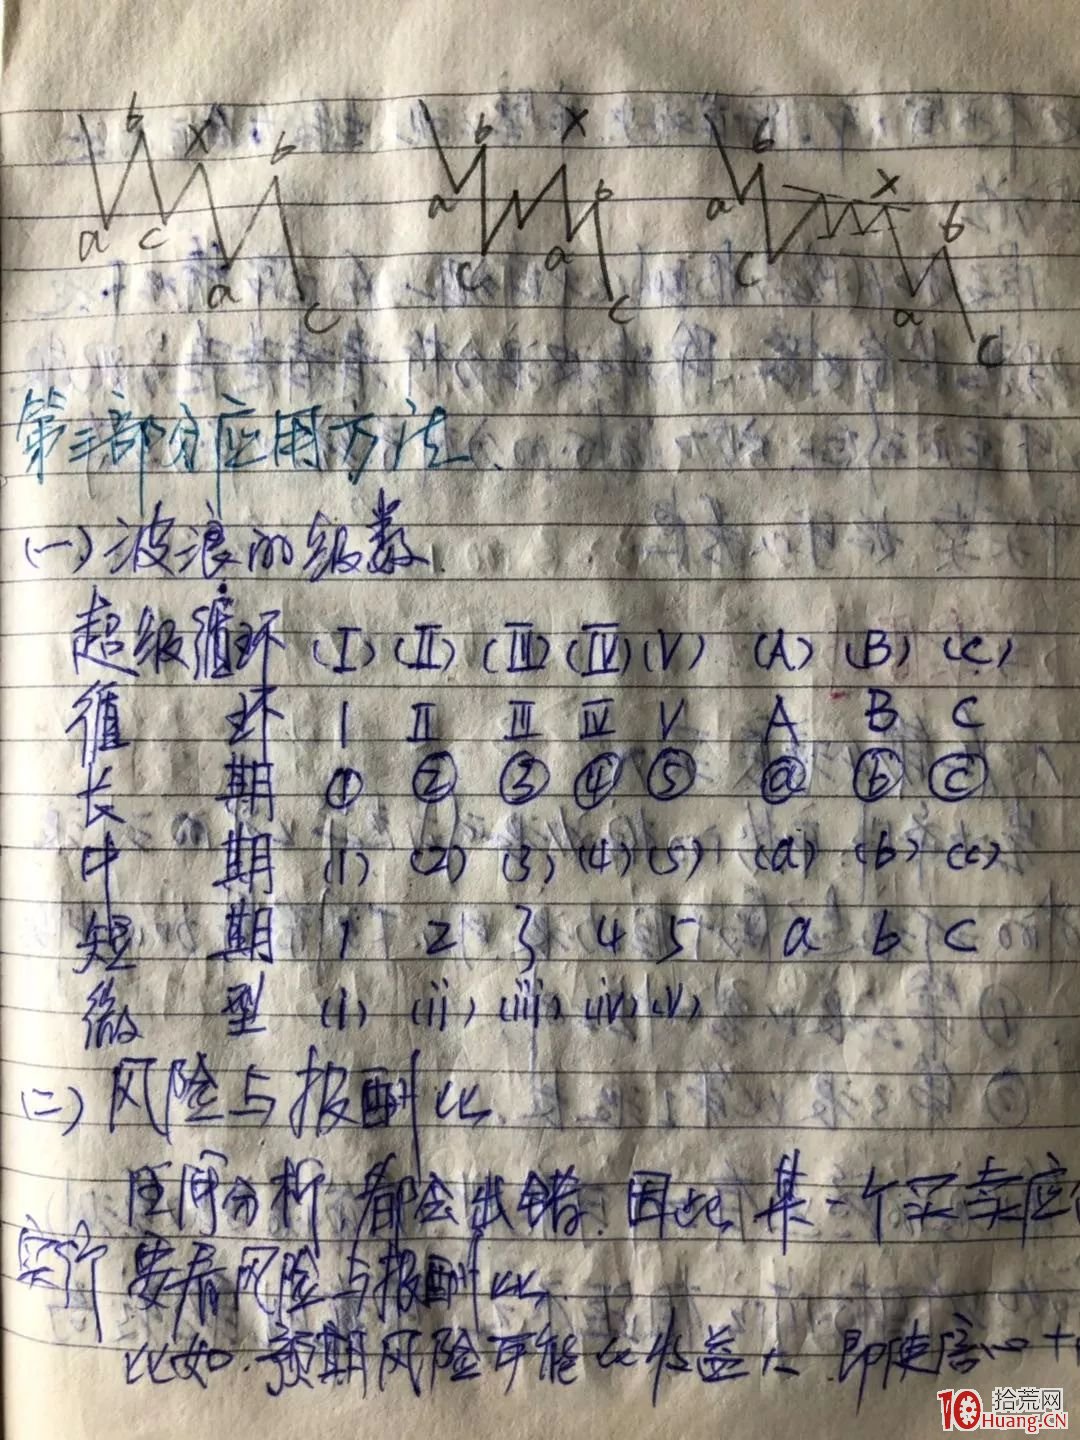 b X b
a c a c
b X b
a c a c
b X b
a c a c
第三部分应用方法.
(一)波浪的级数.
超级循环 (I) (II) (III) (IV) (V) (A) (B) (C)
循环 I II III IV V A B C
长期 ① ② ③ ④ ⑤ ⓐ ⓑ ⓒ
中期 (1) (2) (3) (4) (5) (a) (b) (c)
短期 1 2 3 4 5 a b c
微型 (i) (ii) (iii) (iv) (v)
(二)风险与报酬比.
任何分析,都会出错.因此,某一个买卖应
实行 要看风险与报酬比.
比如.预期风险可能比收益大.即使信心十
拾荒网
10Huang.CN